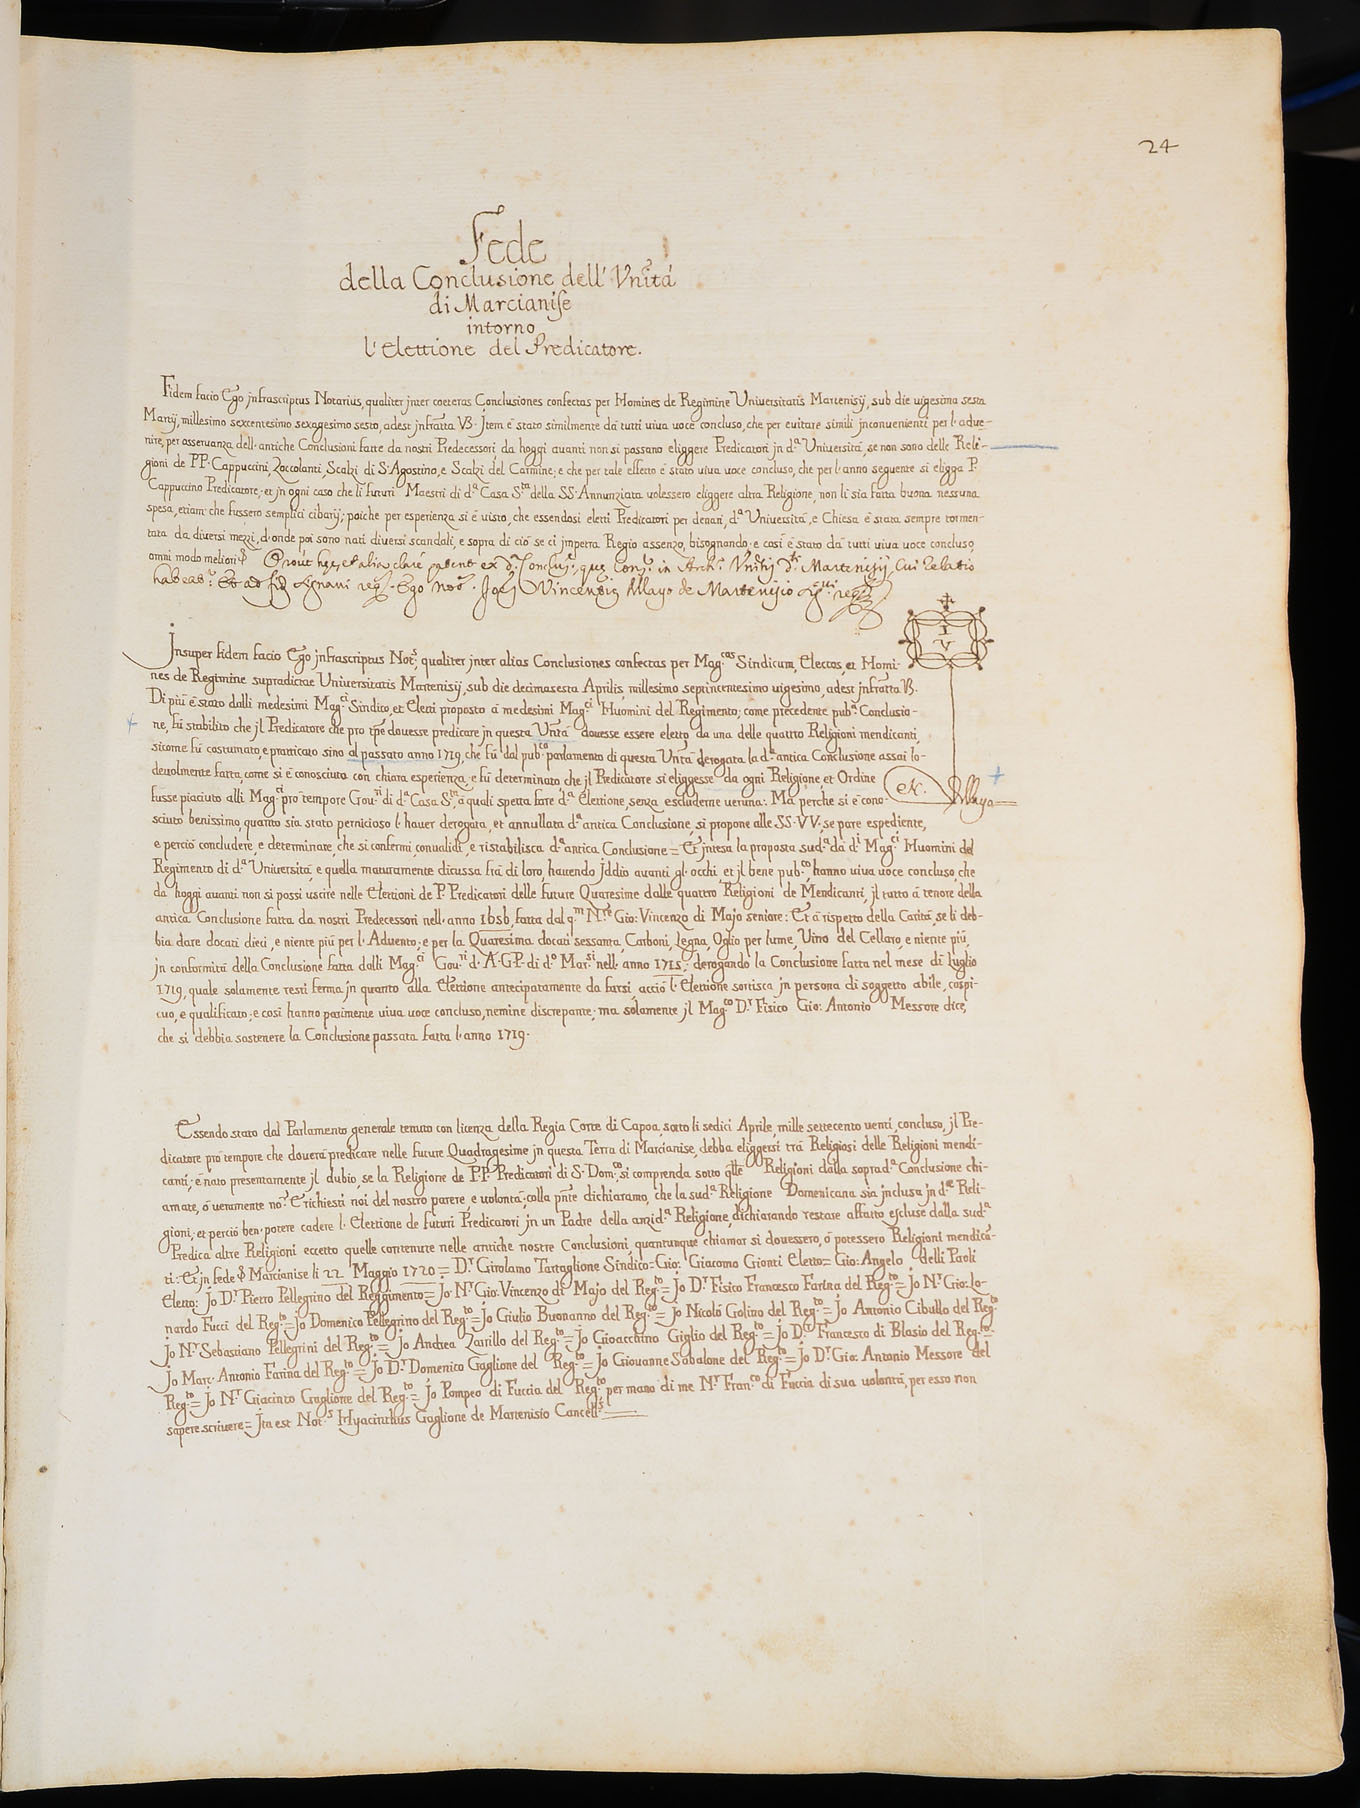 24
Fede
della Conclusione dell' Vn̄itá
di Marcianise
intorno
l'Elettione del Predicatore.
Fidem facio Ego jnfrascriptus Notarius, qualiter jnter coeteras Conclusiones confectas per Homines de Regimine Universitatis Martenisij, sub die uigesima sesta
Martij, millesimo sexcentesimo sexagesimo sesto, adest jnfratta V3. Jtem é stato similmente dá tutti uiua uoce concluso, che per euitare simili jnconuenienti per l'adue-
nire, per osseruanza dell'antiche Conclusioni fatte da nostri Predecessori, da hoggi auanti non si possano eliggere Predicatori jn d.ª Universitá, se non sono delle Reli-
gioni de PP. Cappuccini, Zoccolanti, Scalzi di S. Agostino, e Scalzi del Carmine; e che per tale effetto é stato uiua uoce concluso, che per l'anno seguente si eligga P.
Cappuccino Predicatore; et jn ogni caso che li futuri Maestri di d.ª Casa S.ta della SS. Annunziata uolessero eliggere altra Religione, non li sia fatta buona nessuna
spesa, etiam che fussero semplici cibarij; poiche per esperienza si é uisto, che essendosi eletti Predicatori per denari, d.ª Universitá, e Chiesa é stata sempre tormen-
tata da diuersi mezzi, d'onde poi sono nati diuersi scandali, e sopra di ció se ci jmpetra Regio assenzo, bisognando; e cosi é stato dá tutti uiua uoce concluso,
omni modo meliori Prout hęc et alia clare patent ex d.ª Conclus.e, quę cons.r in Arch.o Vn̄itis d.i Martenisij, Cui relatio
habeat.r Et ad fid. signaui reg. Ego Not.s Joēs Vincentiq Mayo de Martenisio
I
V
Jnsuper fidem facio Ego jnfrascriptus Not.s, qualiter jnter alias Conclusiones confectas per Mag.cos Sindicum, Electos, et Homi-
nes de Regimine supradictae Universitatis Martenisij, sub die decimasesta Aprilis, millesimo septincentesimo uigesimo, adest jnfratta V3.
Di piú é stato dalli medesimi Mag.ci Sindico, et Eletti proposto á medesimi Mag.ci Huomini del Regimento; come precedente pub.ª Conclusio-
ne, fú stabilito che jl Predicatore che pro tpē douesse predicare jn questa Vn̄tá douesse essere eletto da una delle quattro Religioni mendicanti,
sicome fú costumato, e pratticato sino al passato anno 1719, che fú dal pub.co parlamento di questa Vn̄tá derogata la d.ª antica Conclusione assai lo-
deuolmente fatta, come si é conosciuto con chiara esperienza, e fú determinato, che jl Predicatore si eliggesse da ogni Religione, et Ordine
fusse piaciuto alli Mag.ci pro tempore Gou.ri di d.ª Casa S.ta, á quali spetta fare d.ª Elettione, senza escluderne ueruna: Ma perche si é cono-
sciuto benissimo, quanto sia stato pernicioso l'hauer derogata, et annullata d.ª antica Conclusione, si propone alle SS. VV. se pare espediente,
e perció concludere, e determinare, che si confermi, conualidi, e ristabilisca d.ª antica Conclusione = Et jntesa la proposta sud.ª dá d.i Mag.ci Huomini del
Regimento di d.ª Universitá, e quella mauramente dicussa frá di loro, hauendo Jddio auanti gl'occhi, et jl bene pub.co, hanno uiua uoce concluso, che
da hoggi auanti non si possi uscire nelle Elettioni de P. Predicatori delle future Quaresime dalle quattro Religioni de Mendicanti, jl tutto á tenore della
antica Conclusione fatta da nostri Predecessori nell'anno 1656, fatta dal q.m N.re Gio: Vincenzo di Majo seniore: Et á rispetto della Caritá, se li deb-
bia dare docati dieci, e niente piú per l'Aduento; e per la Quaresima docati sessanta, Carboni, Legna, Oglio per lume, Vino del Cellaro, e niente piú,
jn conformitá della Conclusione fatta dalli Mag.ci Gou.ri d'A.G.P. di d.o Mar.si nell'anno 1715; derogando la Conclusione fatta nel mese di Luglio
1719, quale solamente resti ferma jn quanto alla Elettione antecipatamente da farsi, accio l'Elettione sortisca jn persona di soggetto abile, cospi-
cuo, e qualificato; e cosi hanno parimente uiua uoce concluso, nemine discrepante; ma solamente jl Mag.co D.r Fisico Gio: Antonio Messore dice,
che si debbia sostenere la Conclusione passata fatta l'anno 1719.
Essendo stato dal Parlamento generale tenuto con licenza della Regia Corte di Capoa, sotto li sedici Aprile, mille settecento uenti, concluso, jl Pre-
dicatore pro tempore che douerá predicare nelle future Quadragesime jn questa Terra di Marcianise, debba eliggersi trá Religiosi delle Religioni mendi-
canti; é nato presentamente jl dubio, se la Religione de P.P. Predicatori di S. Dom.co, si comprenda sotto q̄lle Religioni dalla soprad.ª Conclusione chi-
amate, ó ueramente no: E richiesti noi del nostro parere e uolontá; colla pn̄te dichiaramo, che la sud.ª Religione Domenicana sia jnclusa jn d.te Reli-
gioni; et perció ben potere cadere l'Elettione de futuri Predicatori jn un Padre della anzid.ª Religione, dichiarando restare affatto escluse dalla sud.ª
Predica altre Religioni eccetto quelle contenute nelle antiche nostre Conclusioni, quantunque chiamar si douessero, ó potessero Religioni mendicā-
ti: Et jn fede Marcianise li 22 Maggio 1720 = D.r Girolamo Tartaglione Sindico = Gio: Giacomo Gionti Eletto = Gio: Angelo delli Paoli
Eletto: Jo D.r Pietro Pellegrino del Reggimento = Jo N.r Gio: Vincenzo di Majo del Reg.to = Jo D.r Fisico Francesco Farina del Reg.to = Jo N.r Gio: Lo-
nardo Fucci del Reg.to = Jo Domenico Pellegrino del Reg.to = Jo Giulio Buonanno del Reg.to = Jo Nicoló Golino del Reg.to = Jo Antonio Cibullo del Reg.to
Jo N.r Sebastiano Pellegrini del Reg.to = Jo Andrea Zarrillo del Reg.to = Jo Gioacchino Giglio del Reg.to = Jo D.r Francesco di Blasio del Reg.to =
Jo Marc'Antonio Farina del Reg.to = Jo D.r Domenico Gaglione del Reg.to = Jo Giouanne Sabalone del Reg.to = Jo D.r Gio: Antonio Messore del
Reg.to = Jo N.r Giacinto Gaglione del Reg.to = Jo Pompeo di Fuccia del Reg.to per mano di me N.r Fran.co di Fuccia di sua uolontá, per esso non
sapere scriuere = Jta est Not.s Hyacinthus Gaglione de Martenisio Cancell.s